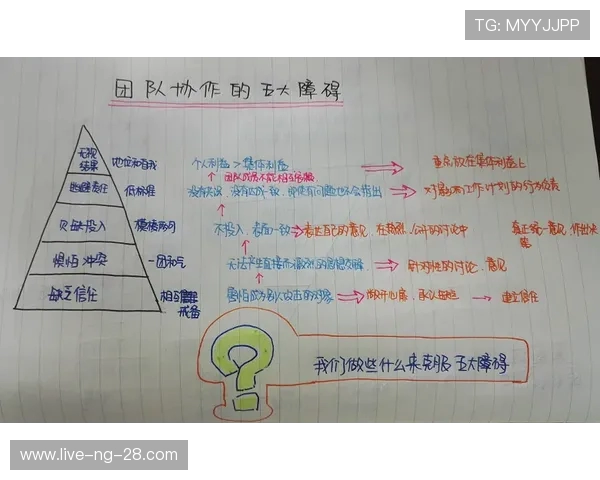 TG: MYYJJPP
团队协作的五大障碍
无视结果
地位和自我
个人利益 > 集体利益
重点放在集体利益上
团队成员不能相互
逃避责任
低标准
没有失误、没有达成一致，即使有问题也不会指出
对影响工作计划的行为负责
欠缺投入
模棱两可
不投入，表面一致
表达自己的意见，在热烈、公开的讨论中
真正统一意见，作出决策
惧怕冲突
一团和气
无法产生直接而激烈的思想交锋
针对性的讨论、意见
缺乏信任
相互戒备
害怕成为别人攻击的对象
敞开心扉，承认缺陷
建立信任
我们做些什么来克服五大障碍
www.live-ng-28.com